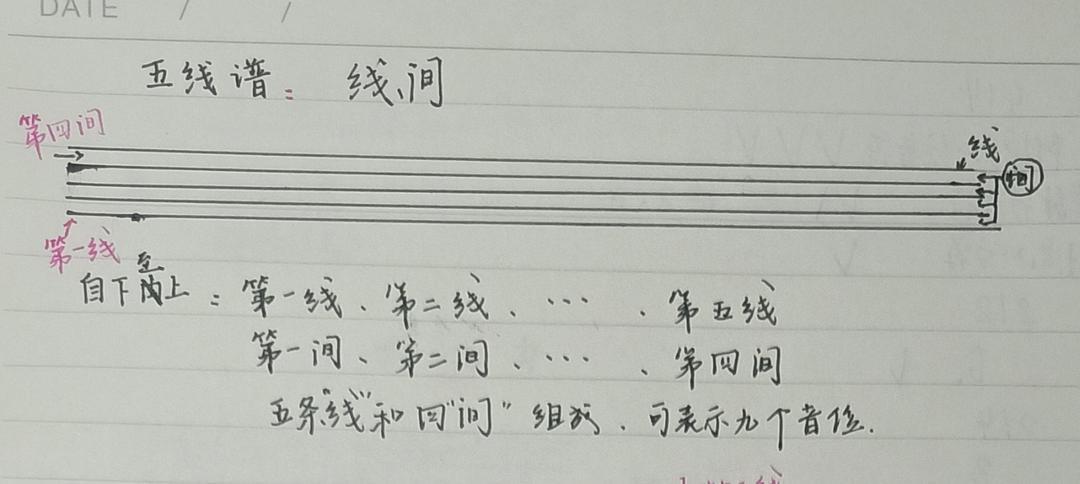 DATE / /
五线谱：线、间
第四间
线
间
第一线
自下至上：第一线、第二线、…、第五线
第一间、第二间、…、第四间
五条"线"和四"间"组成，可表示九个音位.